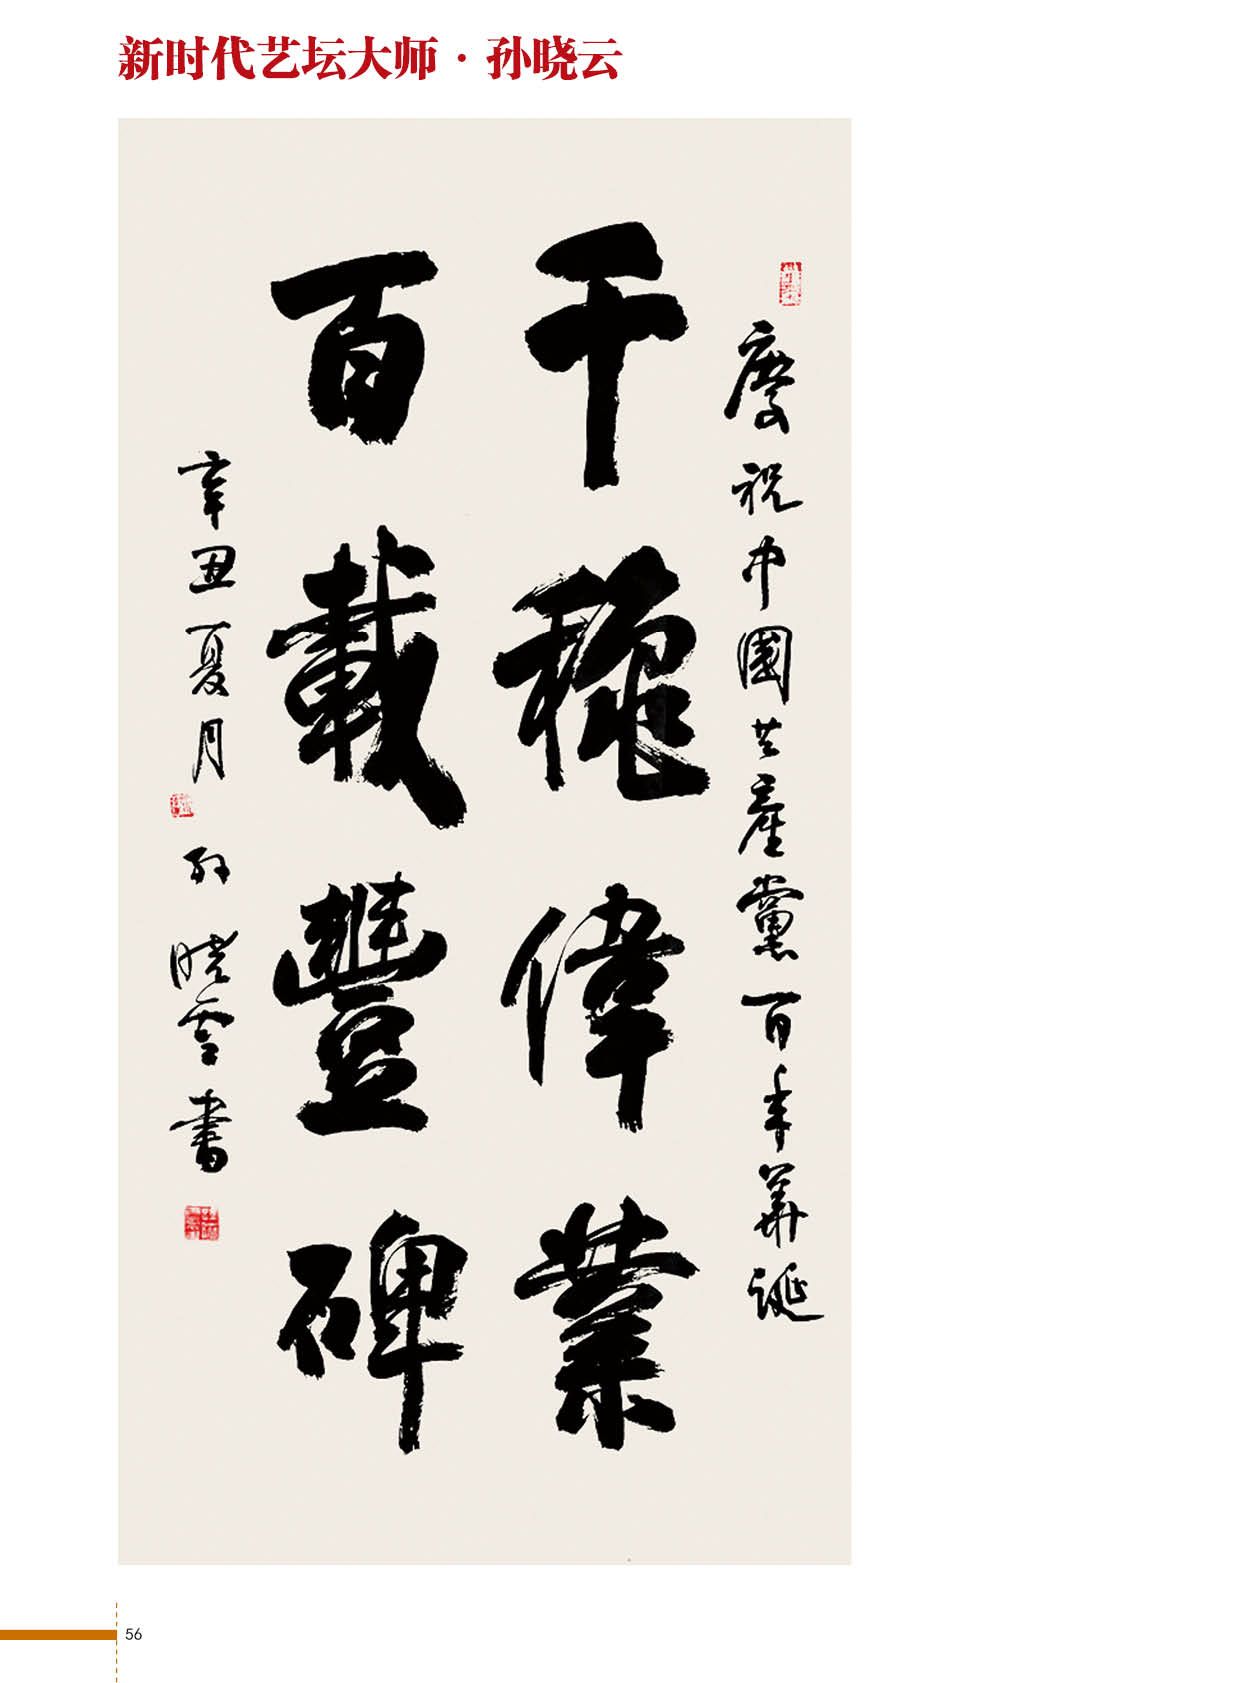 新时代艺坛大师·孙晓云
慶祝中國共產黨百年華誕
千穐偉業
百載豐碑
辛丑夏月 孫曉雲書
56